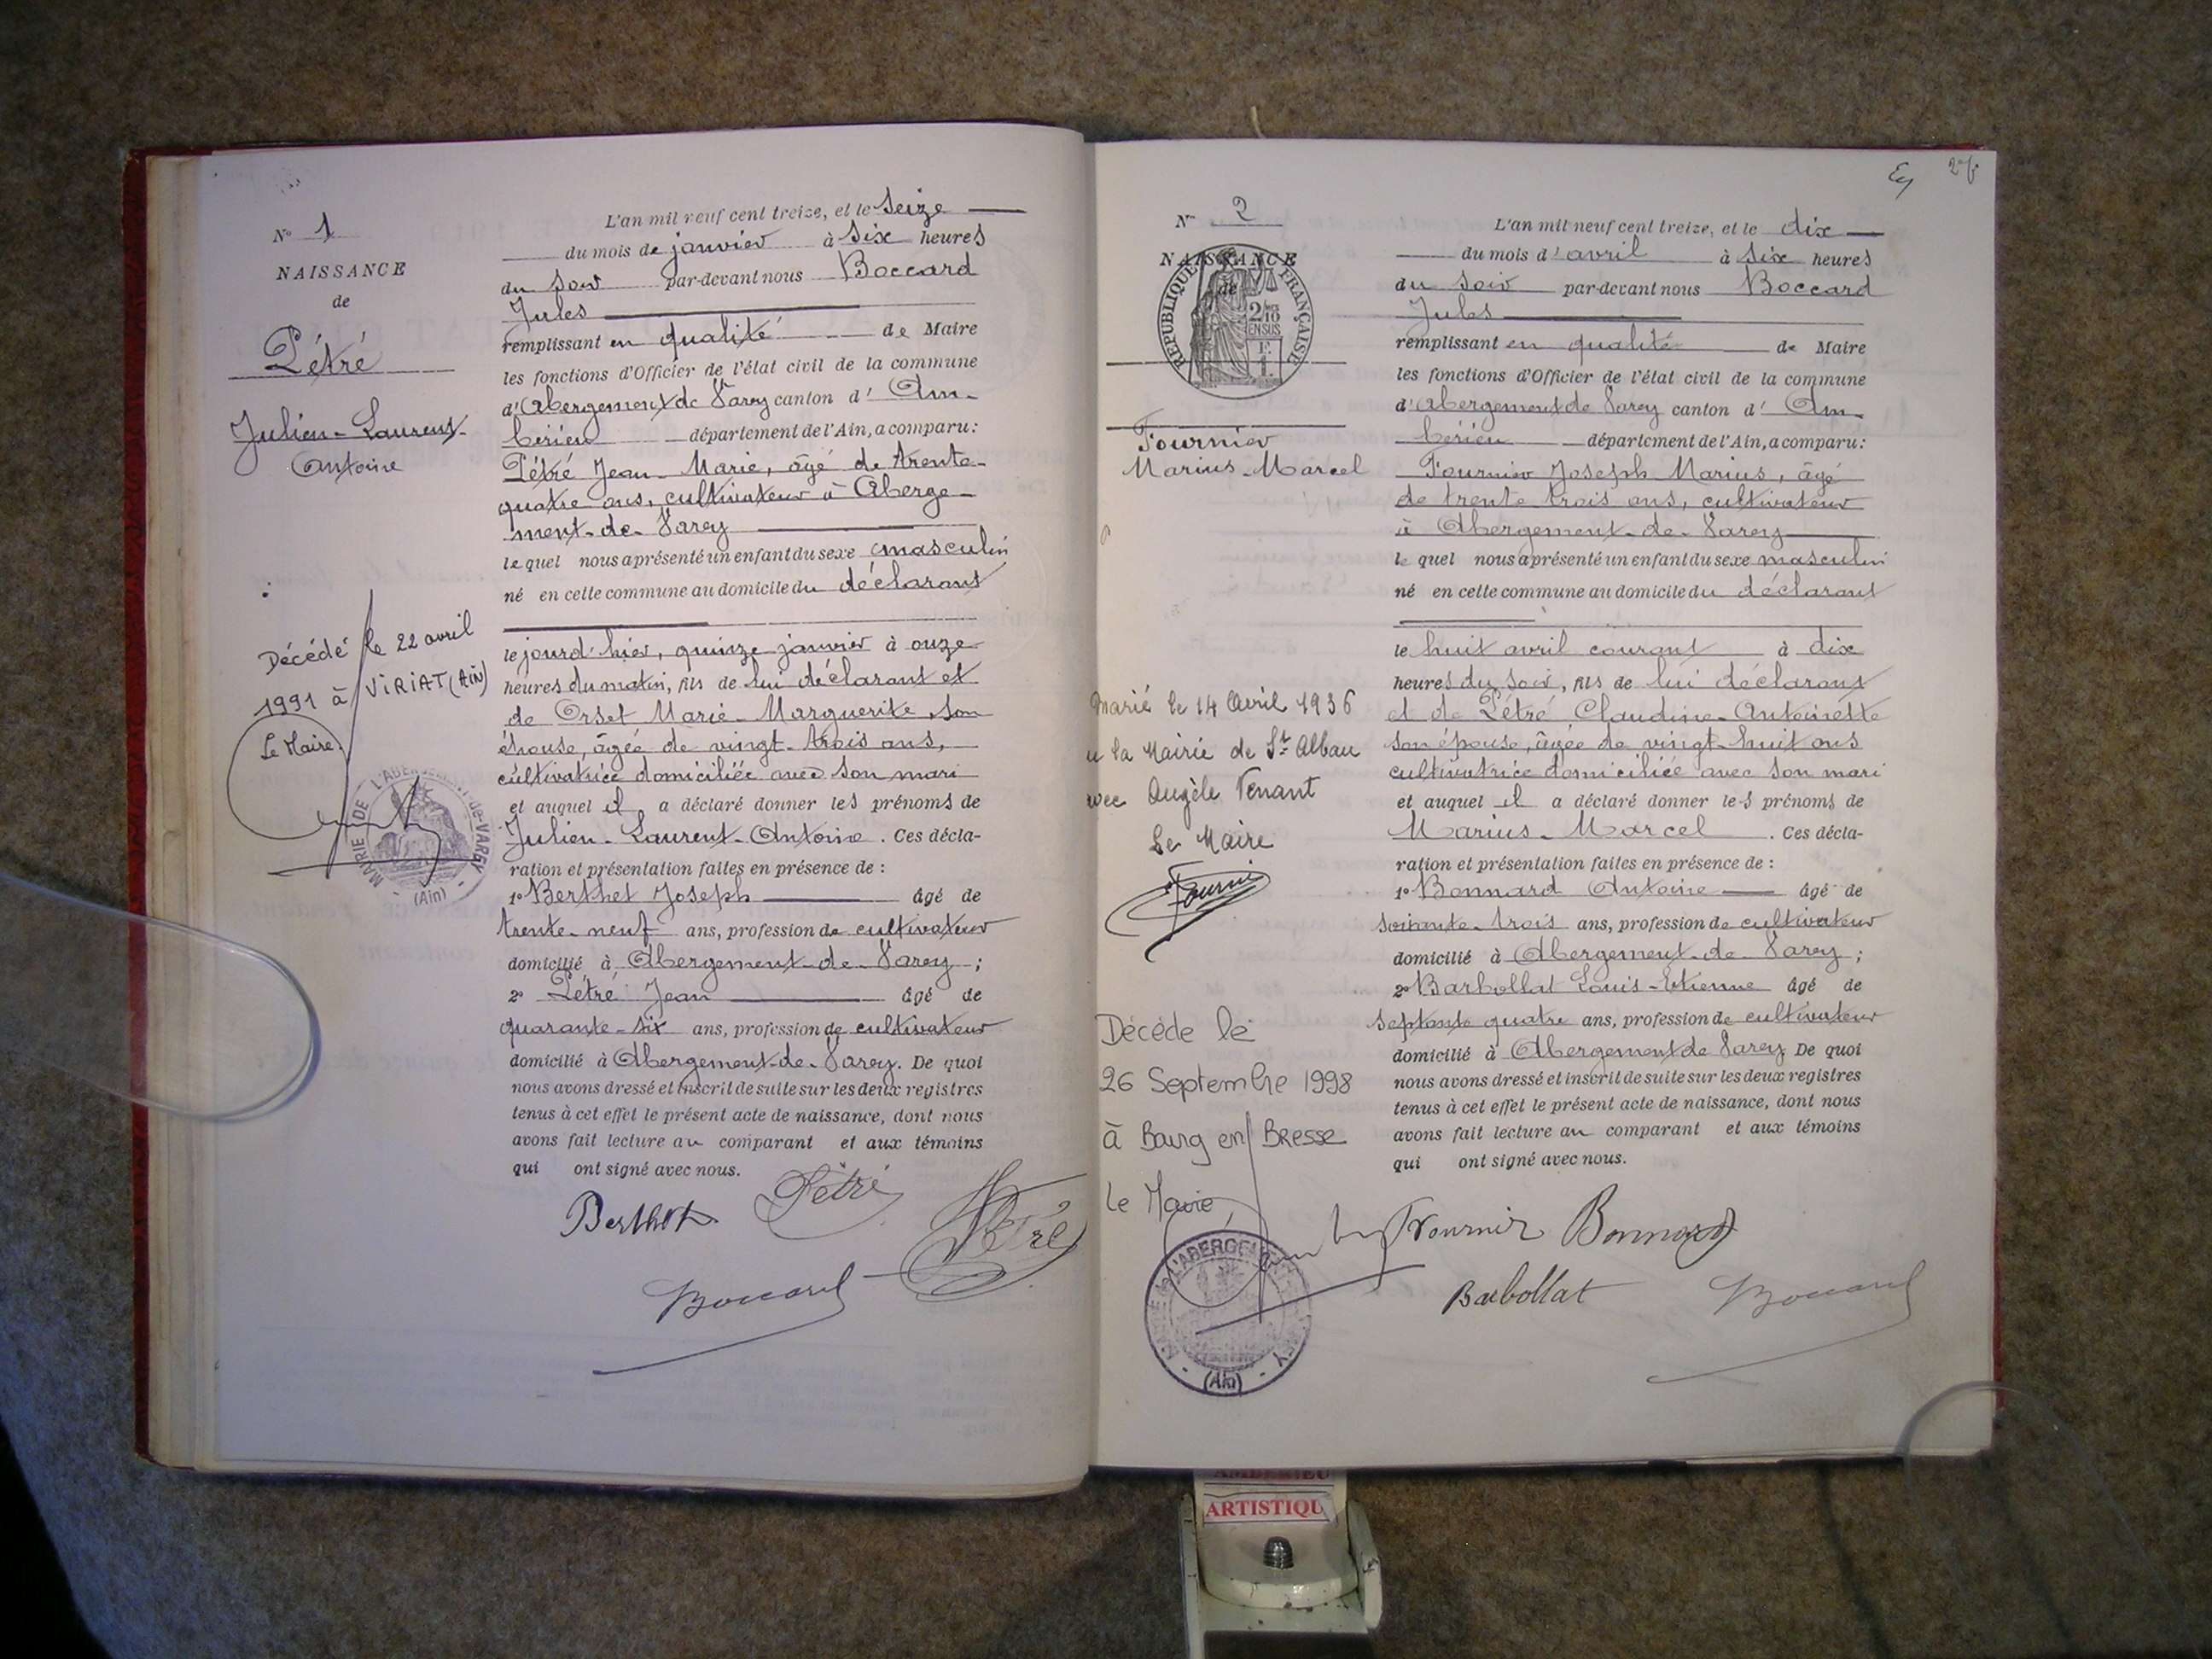 N° 1
NAISSANCE
de
Pétré
Julien-Laurent-
Antoine
Décédé le 22 avril
1991 à VIRIAT (AIN)
Le Maire
MAIRIE DE L'ABERGEMENT-de-VAREY
(Ain)
L'an mil neuf cent treize, et le seize
du mois de janvier à six heures
du soir par-devant nous Boccard
Jules
remplissant en qualité de Maire
les fonctions d'Officier de l'état civil de la commune
d'Abergement de Varey canton d'Am-
bérieu département de l'Ain, a comparu:
Pétré Jean-Marie, âgé de trente-
quatre ans, cultivateur à Aberge-
ment-de-Varey
lequel nous a présenté un enfant du sexe masculin
né en cette commune au domicile du déclarant
le jourd'hier, quinze janvier à onze
heures du matin, fils de lui déclarant et
de Orset Marie-Marguerite, son
épouse, âgée de vingt-trois ans,
cultivatrice domiciliée avec son mari
et auquel il a déclaré donner les prénoms de
Julien-Laurent-Antoine. Ces décla-
ration et présentation faites en présence de :
1° Berthet Joseph âgé de
trente-neuf ans, profession de cultivateur
domicilié à Abergement-de-Varey ;
2° Pétré Jean âgé de
quarante-six ans, profession de cultivateur
domicilié à Abergement-de-Varey. De quoi
nous avons dressé et inscrit de suite sur les deux registres
tenus à cet effet le présent acte de naissance, dont nous
avons fait lecture au comparant et aux témoins
qui ont signé avec nous.
Berthet Pétré
Pétré
Boccard
N° 2
NAISSANCE
de
REPUBLIQUE FRANÇAISE
2/10
EN SUS
F.
1.
Fournier
Marius-Marcel
Marié le 14 Avril 1936
à la Mairie de St Alban
avec Angèle Tenant
Le Maire
Fournier
Décéde le
26 Septembre 1998
à Bourg en Bresse
le Maire
(Ain)
L'an mil neuf cent treize, et le dix
du mois d'avril à six heures
du soir par-devant nous Boccard
Jules
remplissant en qualité de Maire
les fonctions d'Officier de l'état civil de la commune
d'Abergement de Varey canton d'Am-
bérieu département de l'Ain, a comparu:
Fournier Joseph Marius, âgé
de trente trois ans, cultivateur
à Abergement-de-Varey
lequel nous a présenté un enfant du sexe masculin
né en cette commune au domicile du déclarant
le huit avril courant à dix
heures du soir, fils de lui déclarant
et de Pétré Claudine-Antoinette
son épouse, âgée de vingt-huit ans
cultivatrice domiciliée avec son mari
et auquel il a déclaré donner les prénoms de
Marius-Marcel. Ces décla-
ration et présentation faites en présence de :
1° Bonnard Antoine âgé de
soixante-trois ans, profession de cultivateur
domicilié à Abergement-de-Varey ;
2° Barbollat Louis-Etienne âgé de
septante quatre ans, profession de cultivateur
domicilié à Abergement de Varey De quoi
nous avons dressé et inscrit de suite sur les deux registres
tenus à cet effet le présent acte de naissance, dont nous
avons fait lecture au comparant et aux témoins
qui ont signé avec nous.
Fournier Bonnard
Barbollat Boccard
AMBERIEU
ARTISTIQU